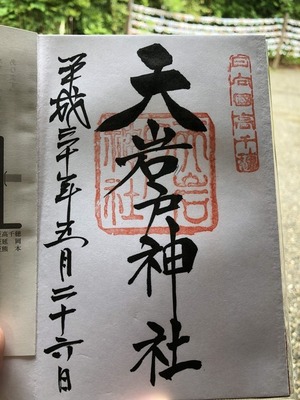 日向國高千穂
天岩戸神社
天岩戸神社
平成三十年五月二十六日